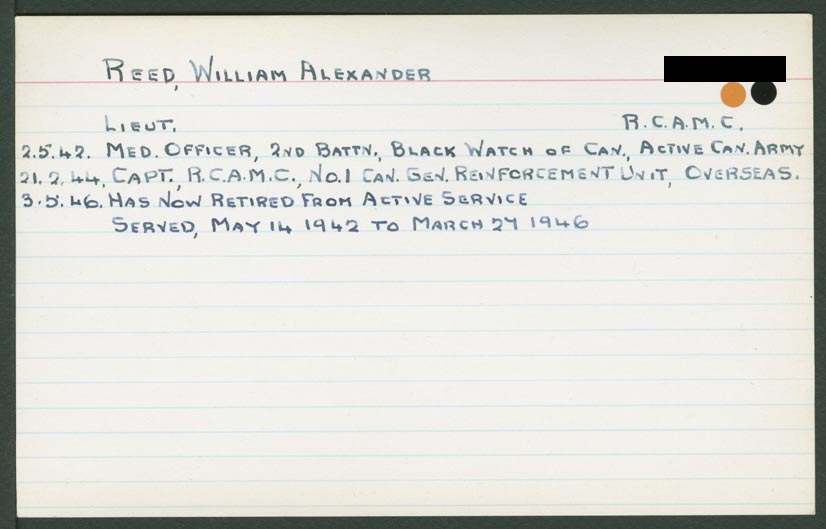 REED, WILLIAM ALEXANDER
LIEUT. R.C.A.M.C.
2.5.42. MED. OFFICER, 2ND BATTN., BLACK WATCH OF CAN., ACTIVE CAN. ARMY
21.2.44. CAPT., R.C.A.M.C., NO.1 CAN. GEN. REINFORCEMENT UNIT, OVERSEAS.
3.5.46. HAS NOW RETIRED FROM ACTIVE SERVICE
SERVED, MAY 14 1942 TO MARCH 27 1946